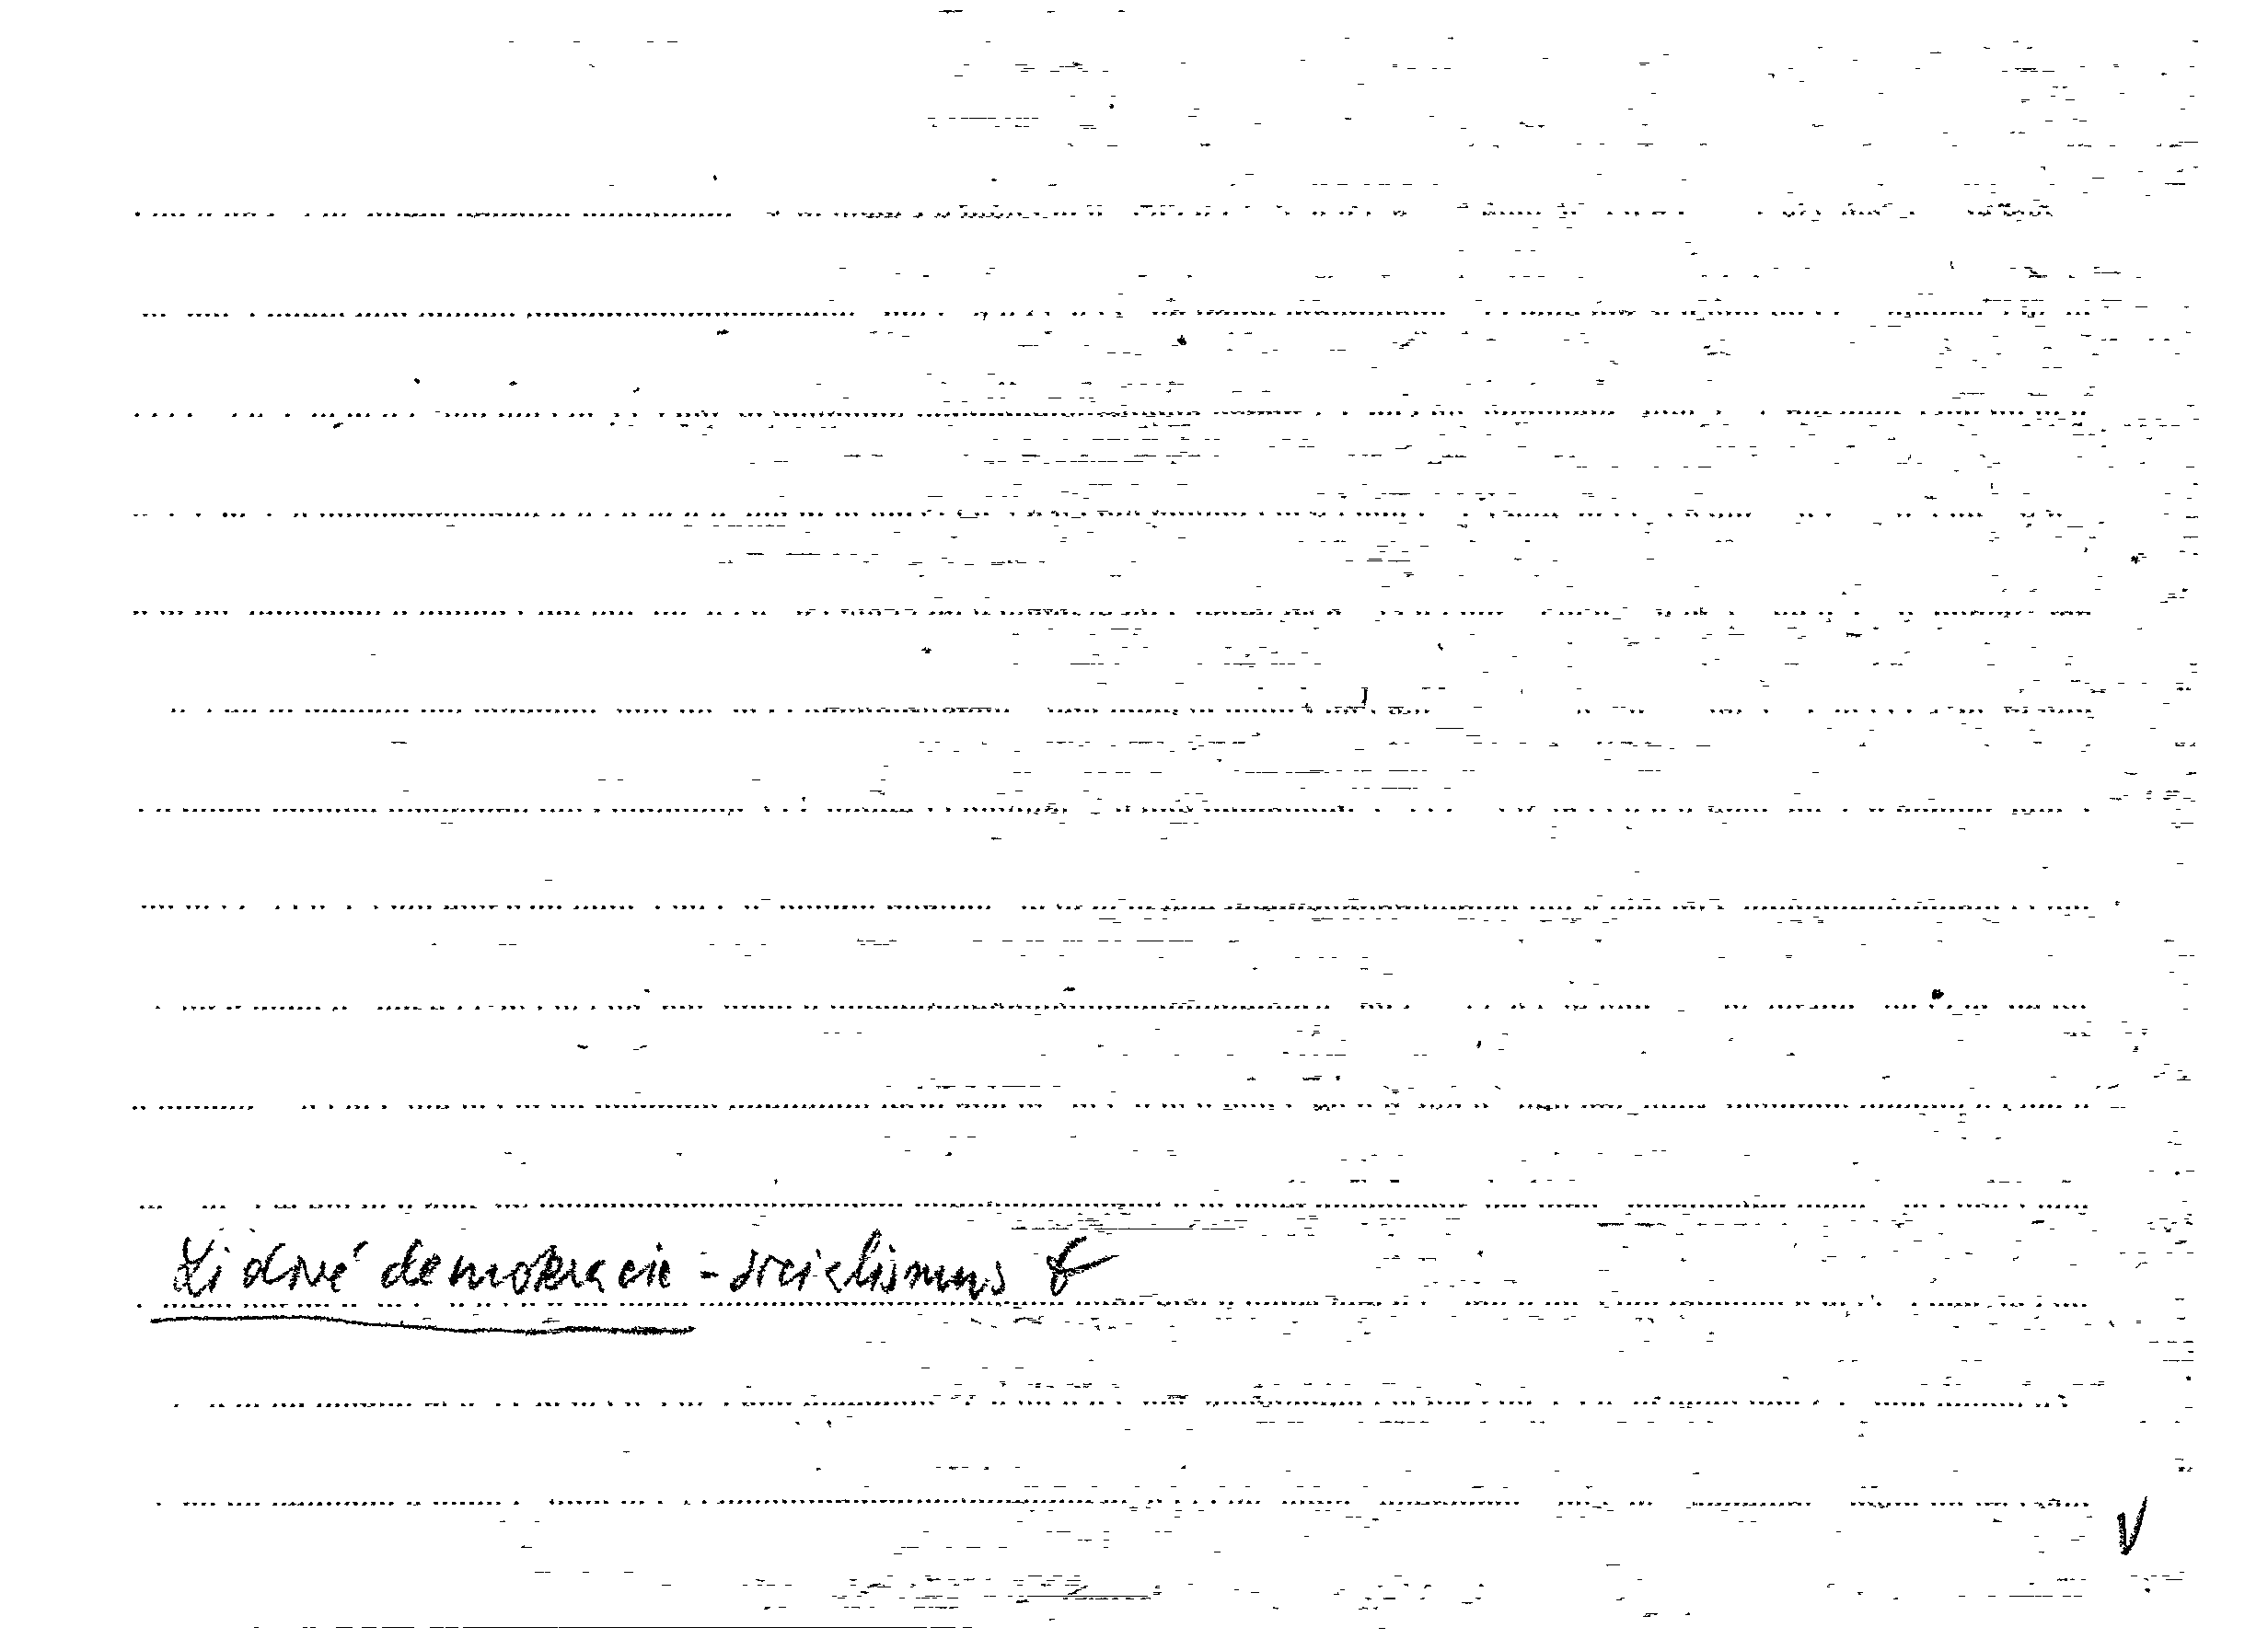 Lidové demokracie - socialismus
V